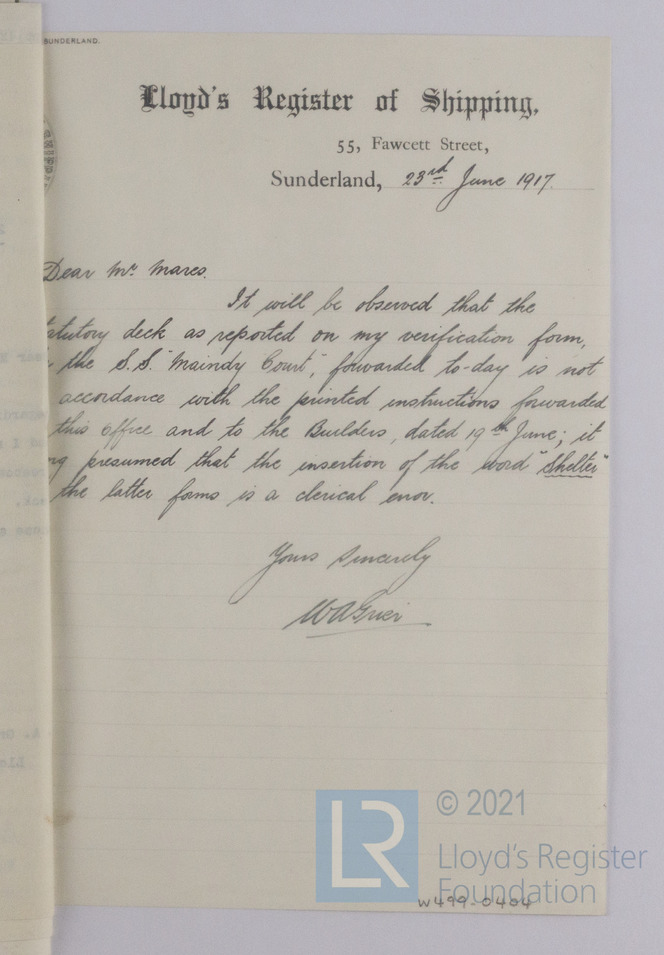 SUNDERLAND.
Lloyd's Register of Shipping,
55, Fawcett Street,
Sunderland, 23rd June 1917.
Dear Mr Mares.
It will be observed that the
tatutory deck as reported on my verification form,
the S.S. "Maindy Court", forwarded to-day is not
accordance with the printed instructions forwarded
this Office and to the Builders, dated 19th June; it
ng presumed that the insertion of the word "Shelter"
the latter forms is a clerical error.
Yours Sincerely
LR
© 2021
Lloyd's Register
Foundation
W499-0404